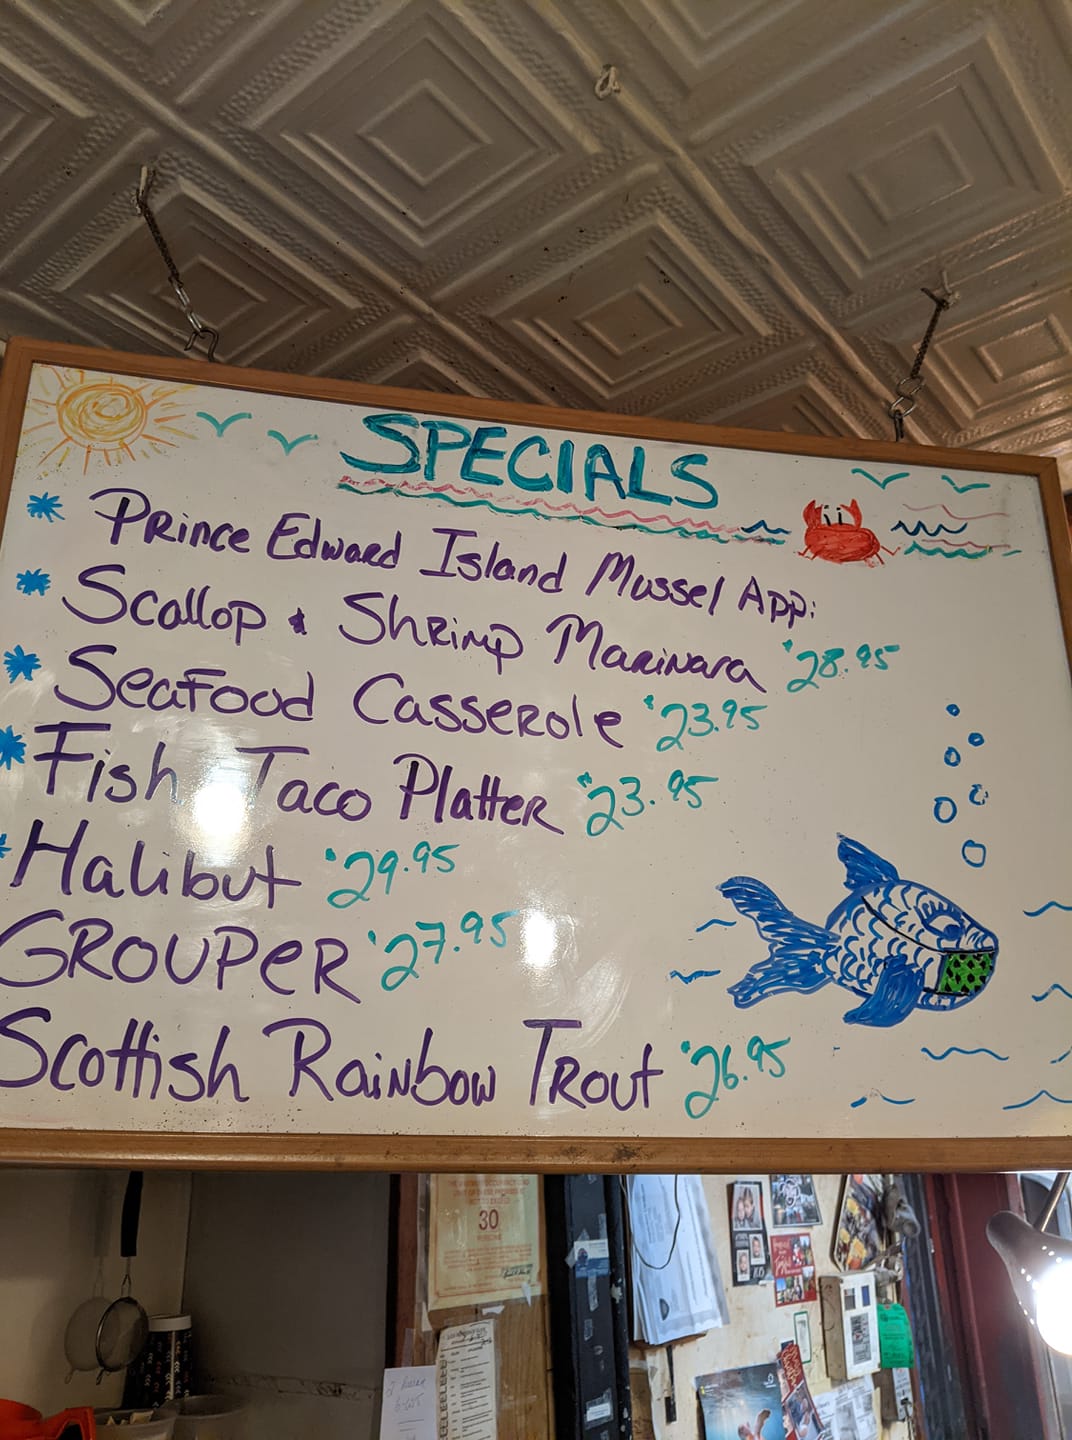 SPECIALS
Prince Edward Island Mussel App:
Scallop & Shrimp Marinara $28.95
Seafood Casserole $23.95
Fish Taco Platter $23.95
Halibut $29.95
GROUPER $27.95
Scottish Rainbow Trout $26.95
30